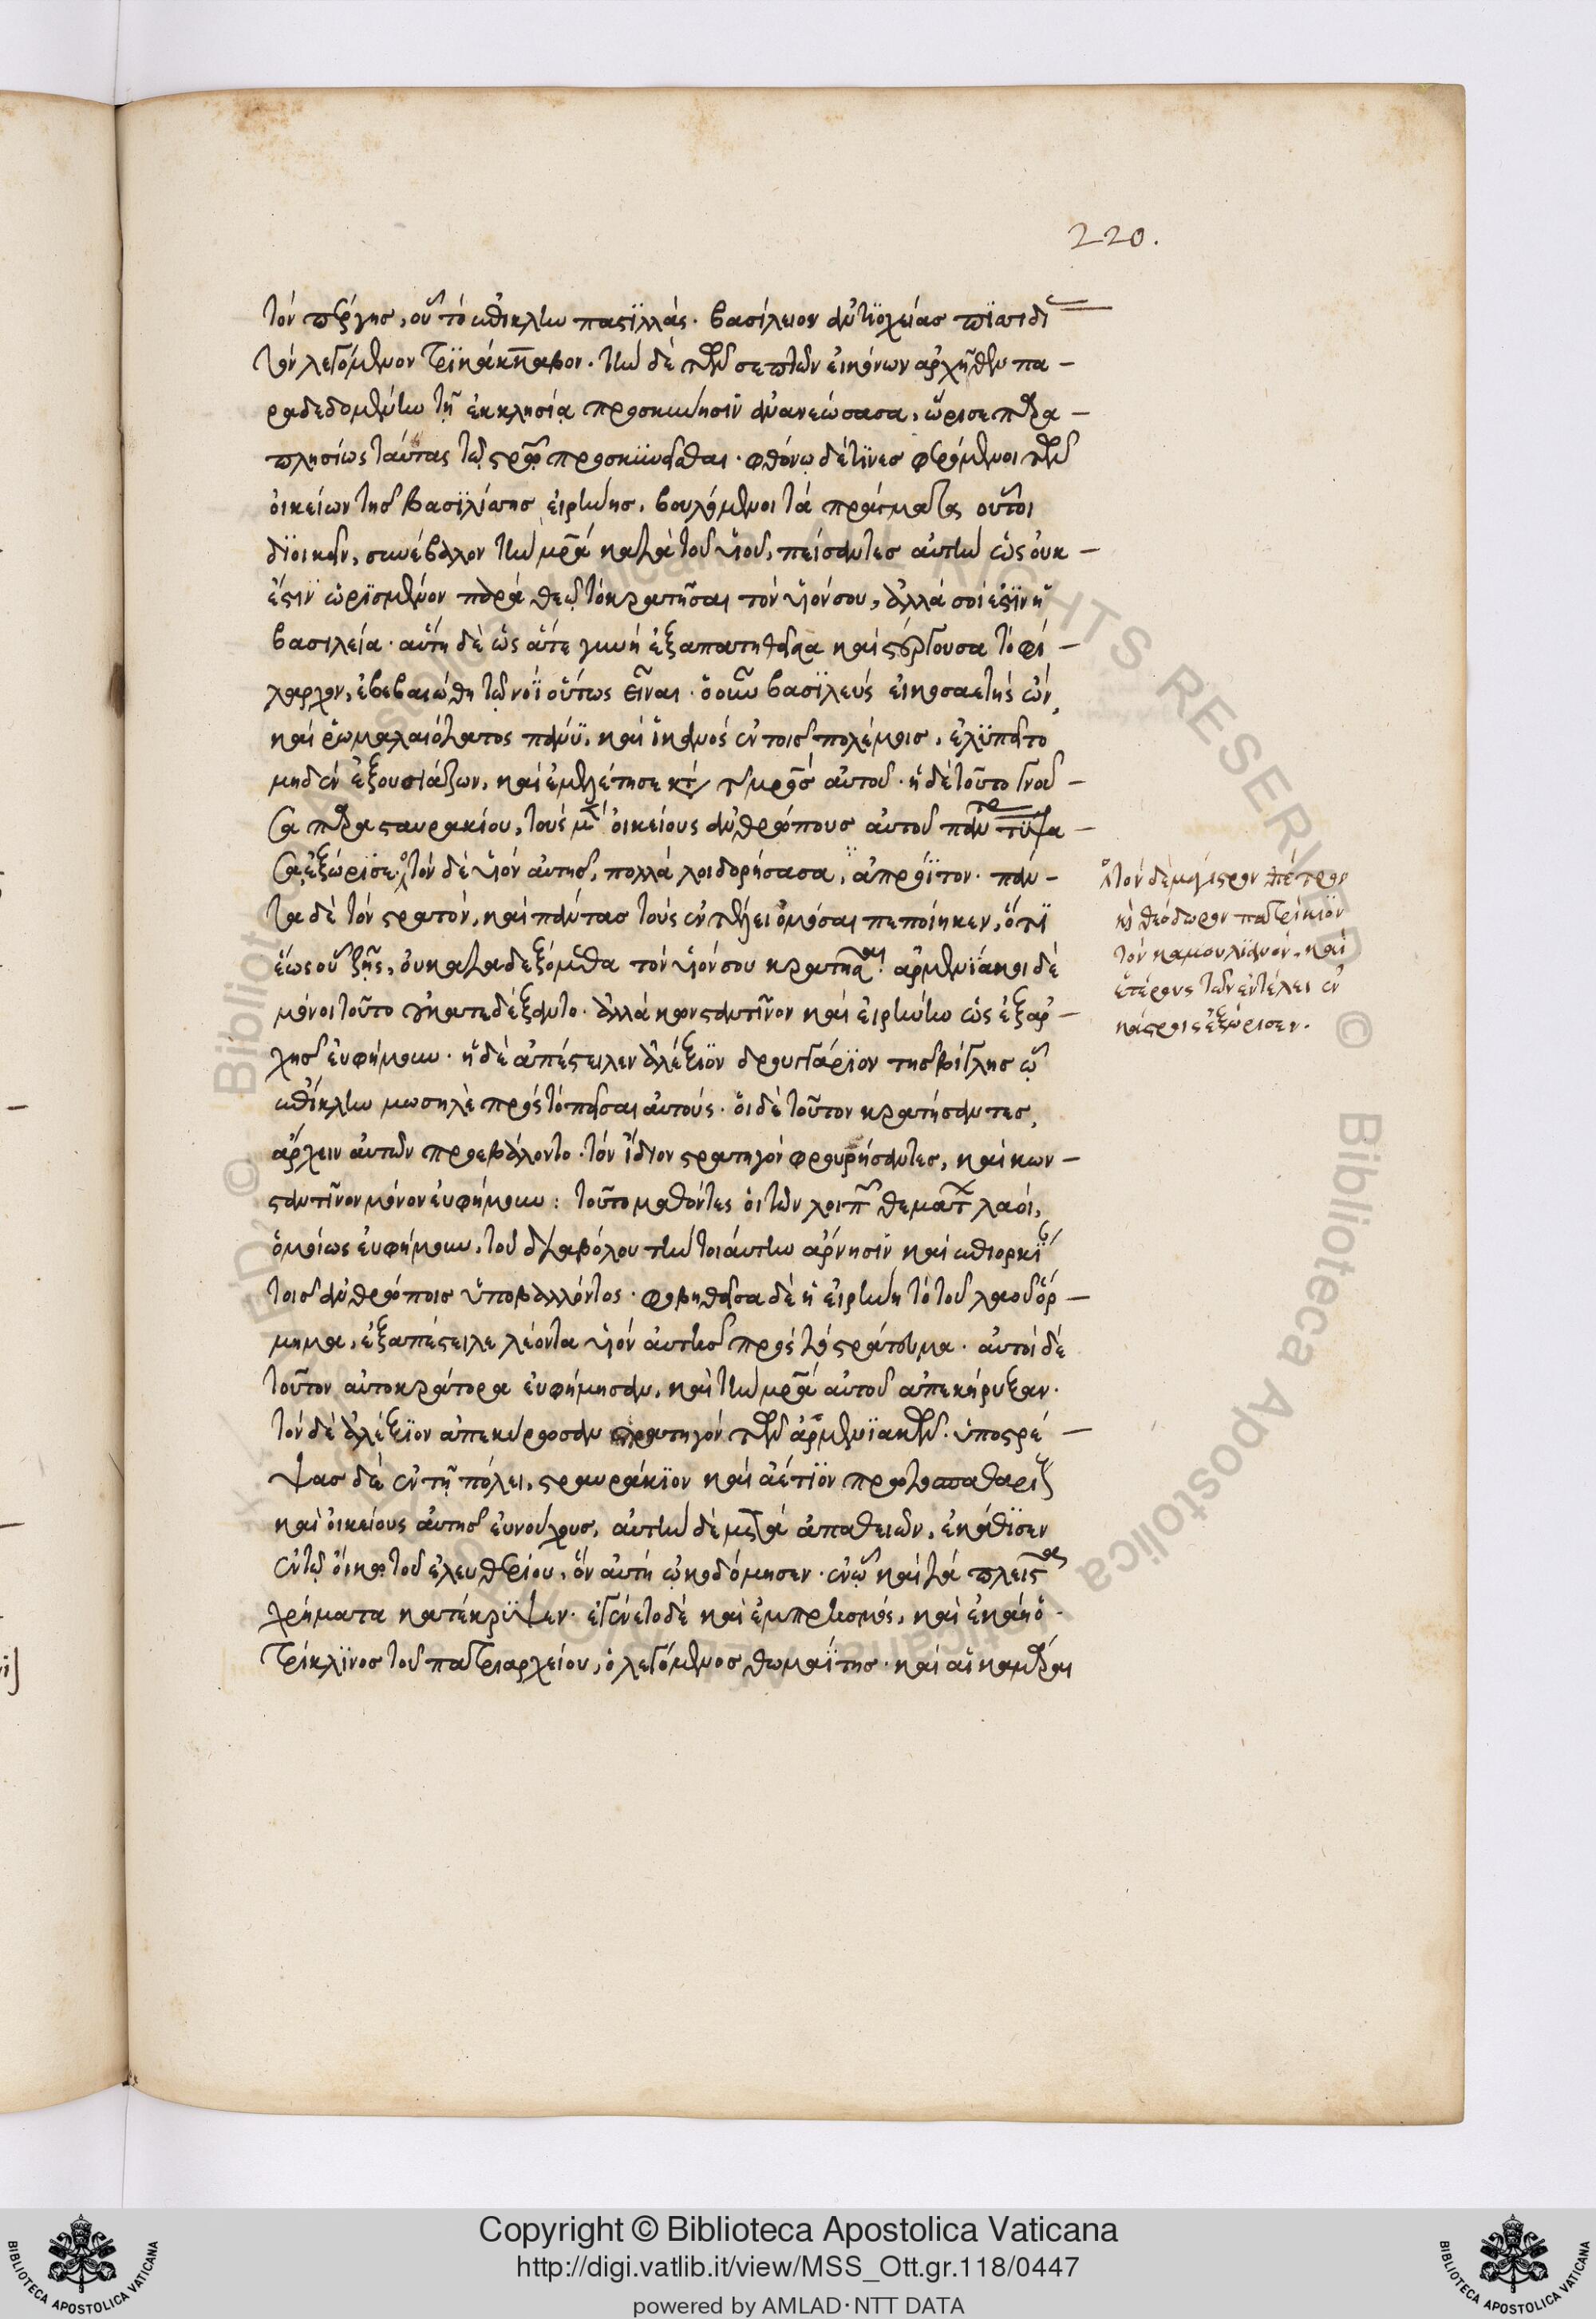 220.
τὸν πέργης, οὗ τὸ ἐπίκλην παστϊλλάς. βασίλειον ἀντϊοχείας πϊσιδί
τὸν λεγόμενον τρϊκάκκαβον. τὴν δὲ τῶν σεπτῶν εἰκόνων ἀρχῆθεν πα-
ραδεδομένην τῇ ἐκκλησίᾳ προσκύνησιν ἀνανεώσασα, ὥρισε παρα-
πλησίως ταύτας τῷ σταυρῷ προσκυνεῖσθαι. φθόνῳ δέ τϊνες φερόμενοι τῶν
οἰκείων τῆς βασϊλίσσης εἰρήνης, βουλόμενοι τὰ πράγματα οὗτοι
διοικεῖν, συνέβαλον τὴν μρα κατὰ τοῦ υἱοῦ, πείσαντες αὐτὴν ὡς οὐκ-
ἔστιν ὡρϊσμένον παρὰ θεῷ τὸ κρατῆσαι τὸν υἱόν σου, ἀλλὰ σοί ἐστϊν ἡ
βασιλεία. αὕτη δὲ ὡς ἅτε γυνὴ ἐξαπατηθεῖσα καὶ στέργουσα τὸ φί-
λαρχον, ἐβεβαιώθη τῷ νοῒ οὕτως εἶναι. ὁ οὖν βασϊλεὺς εἰκοσαετὴς ὢν,
καὶ ῥωμαλαιότατος πάνυ, καὶ ἱκανὸς ἐν τοῖς πολέμοις, ἐλϋπεῖτο
μηδὲν ἐξουσιάζων, καὶ ἐμελέτησε κτ τ μρς αὐτοῦ. ἡ δὲ τοῦτο γνοῦ-
σα παρα σταυρακίου, τοὺς μὲν οἰκείους ἀνθρώπους αὐτοῦ πάντας τύψα-
σα, ἐξώρϊσε. τὸν δὲ υἱὸν αὐτῆς, πολλὰ λοιδορήσασα, ἀπρόϊτον. πάν-
τα δὲ τὸν στρατὸν, καὶ πάντας τοὺς ἐν τέλει ὀμόσαι πεποίηκεν, ὅτϊ
ἕως οὗ ζῇς, οὐ καταδεξόμεθα τὸν υἱόν σου κρατῆσαι. ἀρμενϊάκοι δὲ
μόνοι τοῦτο οὐ κατεδέξαντο. ἀλλὰ κωνσταντῖνον καὶ εἰρήνην ὡς ἐξαρ-
χῆς εὐφήμουν. ἡ δὲ ἀπέστειλεν ἀλέξϊον δρουγγάρϊον τῆς βίγλης ᾧ
ἐπίκλην μωσηλὲ πρὸς τὸ πεῖσαι αὐτούς. οἱ δὲ τοῦτον κρατήσαντες,
ἄρχειν αὐτῶν προεβάλοντο. τὸν ἴδιον στρατηγὸν φρουρήσαντες, καὶ κων-
σταντῖνον μόνον εὐφήμουν: τοῦτο μαθόντες οἱ τῶν λοιπῶν θεμάτων λαοί,
ὁμοίως εὐφήμουν, τοῦ διαβόλου τὴν τοιαύτην ἄρνησϊν καὶ ἐπιορκϊ
τοῖς ἀνθρώποις ὑποβάλλόντος. φοβηθεῖσα δὲ ἡ εἰρήνη τὸ τοῦ λαοῦ ὅρ-
μημα, ἐξαπέστειλε λέοντα υἱὸν αὐτῆς πρὸς τὸ στράτευμα. αὐτοὶ δὲ
τοῦτον αὐτοκράτορα εὐφήμησαν, καὶ τὴν μρα αὐτοῦ ἀπεκήρυξαν.
τὸν δὲ ἀλέξϊον ἀπεκύρωσαν στρατηγὸν τῶν ἀρμενϊακῶν. ὑποστρέ-
ψας δὲ ἐν τῇ πόλει, σταυράκϊον καὶ ἀέτϊον πρωτοσπαθαρί
καὶ οἰκείους αὐτῆς εὐνούχους, αὐτὴν δὲ μετὰ ἀπαθειῶν, ἐκάθϊσεν
ἐν τῷ οἴκῳ τοῦ ἐλευθερίου, ὃν αὐτὴ ᾠκοδόμησεν. ἐν ᾧ καὶ τὰ πλεῖστα
χρήματα κατέκρϋψεν. ἐγένετο δὲ καὶ ἐμπρησμὸς, καὶ ἐκάη ὁ
τρίκλϊνος τοῦ πατριαρχείου, ὁ λεγόμενος θωμαΐτης. καὶ αἱ καμάραι
τὸν δὲ μάγιστρον πέτρον
κὶ θεόδωρον πατρίκιϊον
τὸν καμουλϊανόν, καὶ
ἑτέρους τῶν ἐν τέλει ἐν
κάστροις ἐξώρισεν.
Copyright © Biblioteca Apostolica Vaticana
http://digi.vatlib.it/view/MSS_Ott.gr.118/0447
powered by AMLAD·NTT DATA
BIBLIOTECA APOSTOLICA VATICANA
BIBLIOTECA APOSTOLICA VATICANA